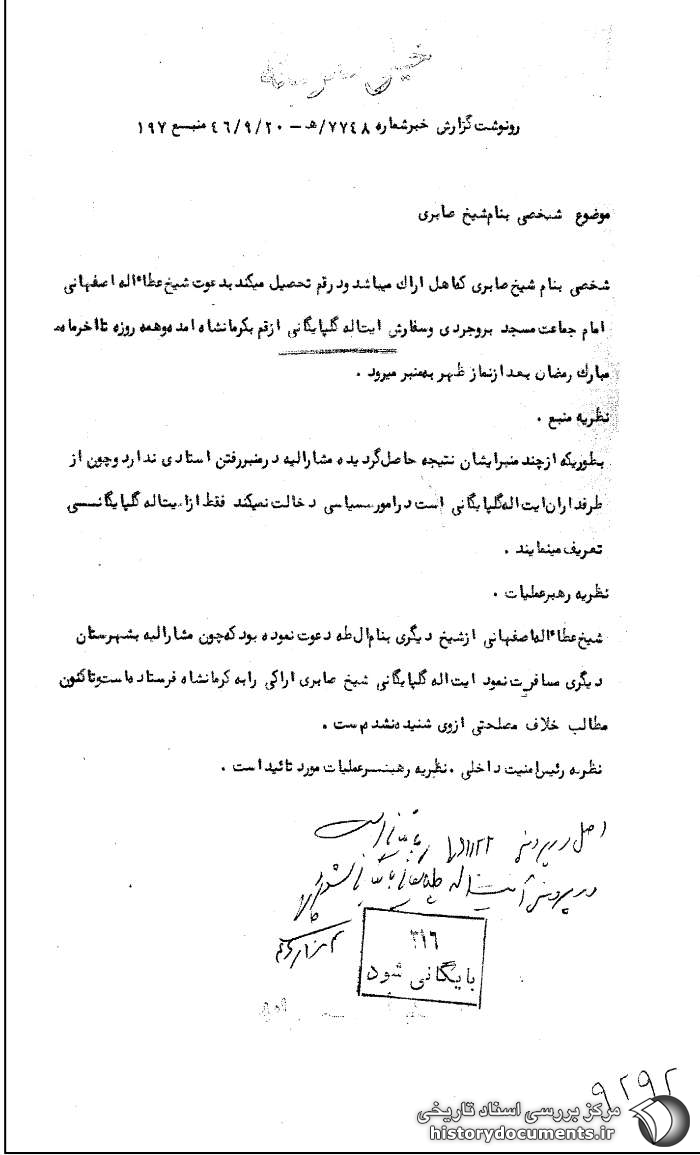 خیلی محرمانه
رونوشت گزارش خبر شماره ۷۷۴۸/هـ – ۴۶/۹/۲۰ منبع ۱۹۷
موضوع شخصی بنام شیخ صابری
شخصی بنام شیخ صابری که اهل اراك میباشد و در قم تحصیل میکند بدعوت شیخ عطاءاله اصفهانی
امام جماعت مسجد بروجردی و سفارش ایت اله گلپایگانی از قم بکرمانشاه امده و همه روزه تا اخر ماه
مبارك رمضان بعد از نماز ظهر به منبر میرود .
نظریه منبع .
بطوریکه از چند منبر ایشان نتیجه حاصل گردیده مشارالیه در منبر رفتن استادی ندارد و چون از
طرفداران ایت اله گلپایگانی است در امور سیاسی دخالت نمیکند فقط از ایت اله گلپایگانی
تعریف مینمایند .
نظریه رهبر عملیات .
شیخ عطاءاله اصفهانی از شیخ دیگری بنام ال طه دعوت نموده بود که چون مشارالیه بشهرستان
دیگری مسافرت نمود ایت اله گلپایگانی شیخ صابری اراکی را به کرمانشاه فرستاده است و تاکنون
مطالب خلاف مصلحتی از وی شنیده نشده است .
نظریه رئیس امنیت داخلی . نظریه رهبر عملیات مورد تائید است .
اصل در پرونده بایگانی است
در پرونده آیت اله گلپایگانی بایگانی شود
۳۱۶
بایگانی شود
۹۲۹۲
مرکز بررسی اسناد تاریخی
historydocuments.ir